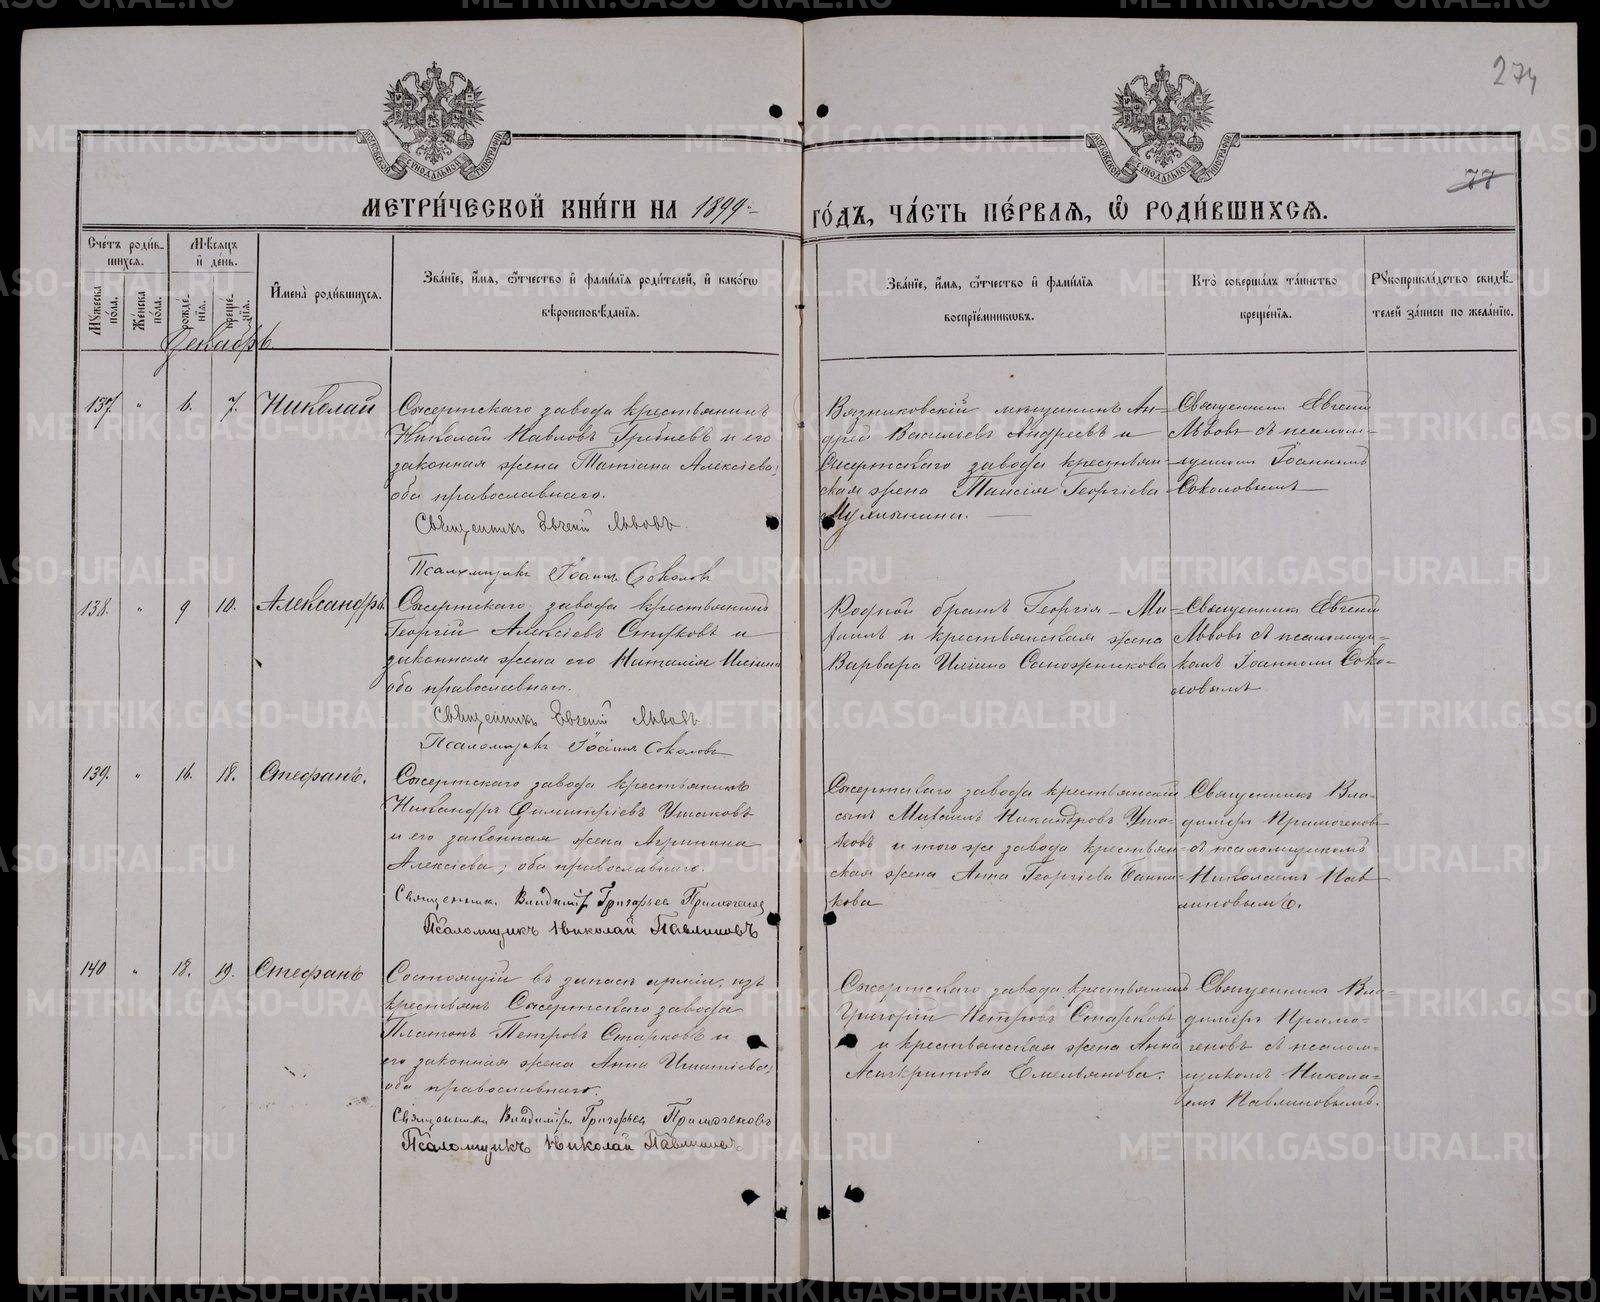 274
77
МОСКОВСКОЙ СѴНОДАЛЬНОЙ ТИПОГРАФІИ
МОСКОВСКОЙ СѴНОДАЛЬНОЙ ТИПОГРАФІИ
МЕТРИ́ЧЕСКОЙ КНИ́ГИ НА 1899
ГО́ДЪ, ЧА́СТЬ ПЕ́РВАѦ, Ѽ РОДИ́ВШИХСѦ.
Сче́тъ роди́в-
шихсѧ.
Мꙋжеска по́ла.
Же́нска по́ла.
Мѣ́сѧцъ
и҆ де́нь.
рожде́нїѧ.
креще́нїѧ.
И҆мена̀ роди́вшихсѧ.
Зва́нїе, и҆́мѧ, ѻ҆́тчество и҆ фами́лїѧ роди́телей, и҆ како́гѡ
вѣроисповѣ́данїѧ.
Зва́нїе, и҆́мѧ, ѻ҆́тчество и҆ фами́лїѧ
воспрїе́мникѡвъ.
Кто̀ соверша́лъ та́инство
креще́нїѧ.
Рꙋкоприкла́дство свидѣ́-
телей за́писи по жела́нїю.
Декабрь
137. " 6. 7. Николай
Сысертскаго завода крестьянинъ
Николай Павловъ Гребневъ и его
законная жена Татіана Алексіева,
оба православнаго.
Священникъ Евгеній Львовъ.
Псаломщикъ Іоаннъ Соколовъ
Вязниковскій мѣщанинъ Ан-
дрей Васильевъ Андреевъ и
Сысертскаго завода крестьян-
ская жена Таисія Георгіева
Священникъ Евгеній
Львовъ съ псалом-
щикомъ Іоанномъ
Соколовымъ
138. " 9 10. Александръ
Сысертскаго завода крестьянинъ
Георгій Алексіевъ и
законная жена его Наталія Иліина
оба православнаго.
Священникъ Евгеній Львовъ.
Псаломщикъ Іоаннъ Соколовъ
Родной братъ Георгія – Ми-
хаилъ и крестьянская жена
Варвара Иліина Сапожникова
Священникъ Евгеній
Львовъ съ псаломщи-
комъ Іоанномъ Соко-
ловымъ
139. " 16. 18. Стефанъ.
Сысертскаго завода крестьянинъ
Никандръ Димитріевъ Ушаковъ
и его законная жена Агрипина
Алексіева, оба православнаго.
Священникъ Владиміръ Григорьевъ Примогеновъ
Псаломщикъ Николай Павлиновъ
Сысертскаго завода крестьянскій
сынъ Михаилъ Никандровъ Уша-
ковъ и того же завода крестьян-
ская жена Анна Георгіева Банни-
кова
Священникъ Вла-
диміръ Примогеновъ
съ псаломщикомъ
Николаемъ Пав-
линовымъ.
140 " 18. 19. Стефанъ
Состоящій въ запасѣ арміи, изъ
крестьянъ Сысертскаго завода
Платонъ Петровъ Старковъ и
его законная жена Анна Игнатіева,
оба православнаго.
Священникъ Владиміръ Григорьевъ Примогеновъ
Псаломщикъ Николай Павлиновъ
Сысертскаго завода крестьянинъ
Григорій Петровъ Старковъ
и крестьянская жена Анна
Асигкритова Емельянова.
Священникъ Вла-
диміръ Примо-
геновъ съ псалом-
щикомъ Никола-
емъ Павлиновымъ.
METRIKI.GASO-URAL.RU